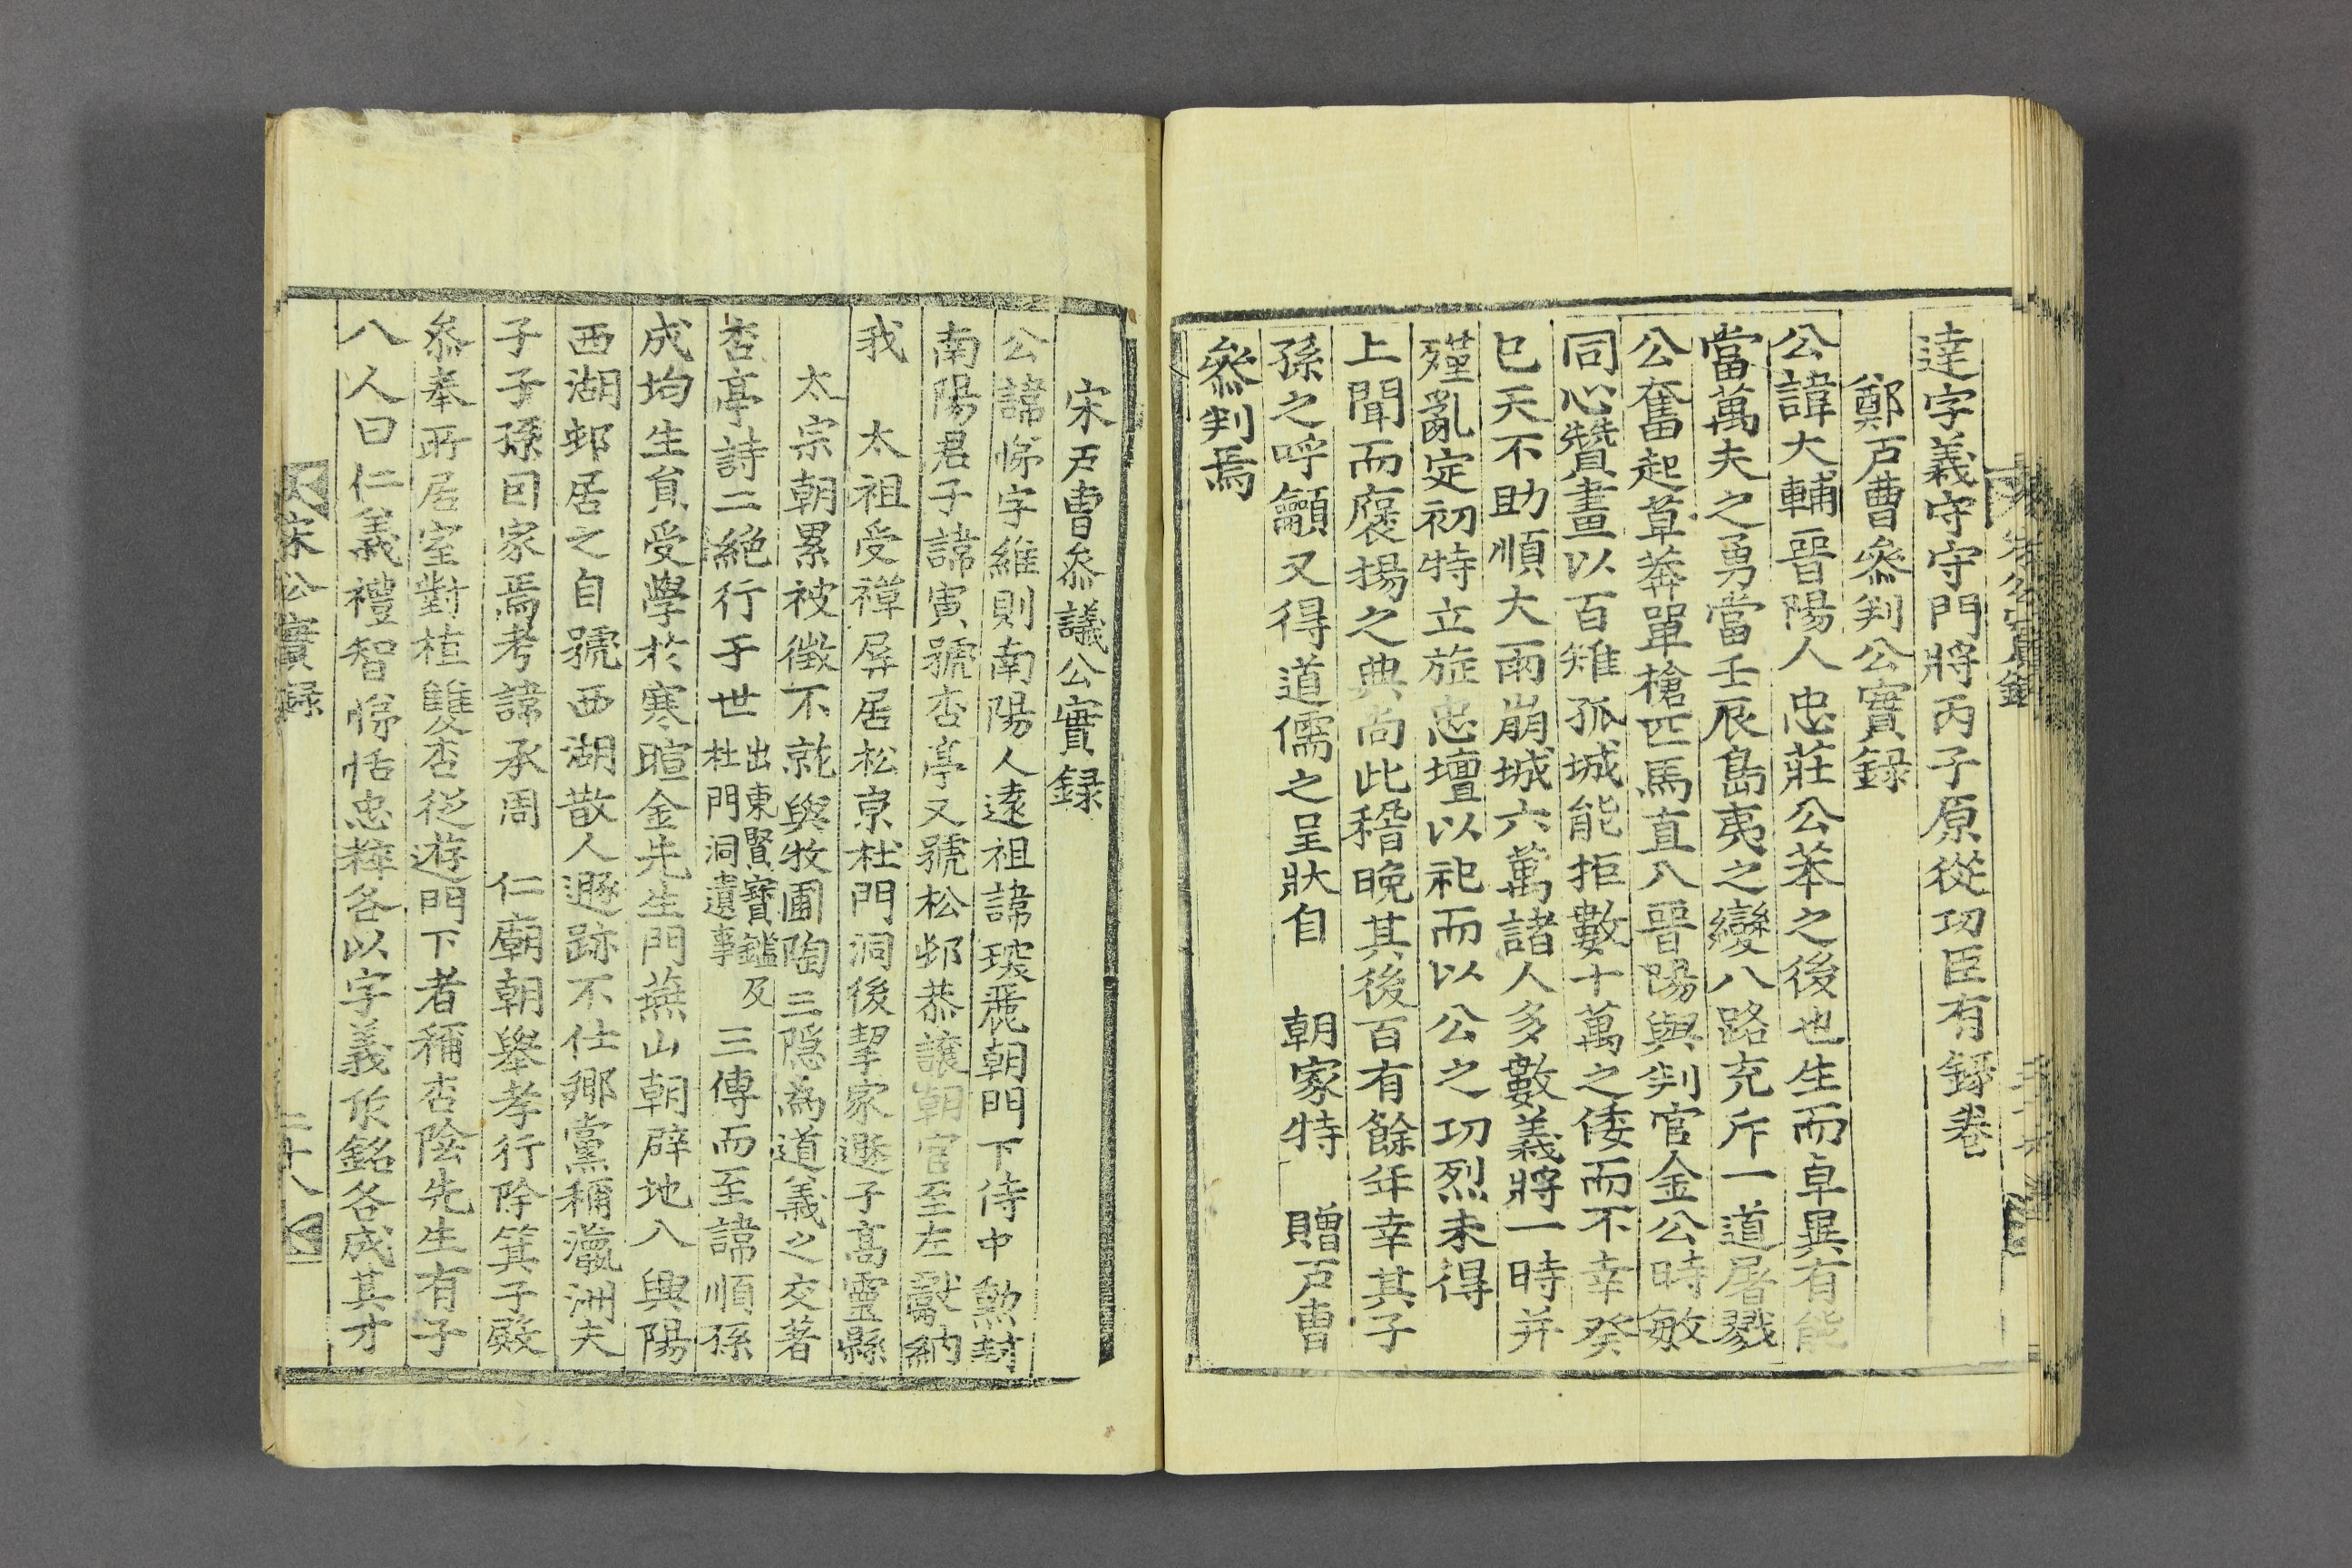 達字義守守門將丙子原從功臣有錄卷
鄭戶曹參判公實録
公諱大輔晉陽人忠莊公苯之後也生而卓異有能
當萬夫之勇當壬辰島夷之變八路充斥一道屠戮
公奮起草莽單槍匹馬直入晉陽與判官金公時敏
同心贊畫以百雉孤城能拒數十萬之倭而不幸癸
巳天不助順大雨崩城六萬諸人多數義將一時并
殣亂定初特立旌忠壇以祀而以公之功烈未得
上聞而褒揚之典尚此稽晚其後百有餘年幸其子
孫之呼籲又得道儒之呈狀自 朝家特 贈戶曹
參判焉
宋戶曹叅議公實録
公諱悌字維則南陽人遠祖諱琰麗朝門下侍中勲封
南陽君子諱寅號杏亭又號松邨恭讓朝官至左獻納
我 太祖受禪屏居松京杜門洞後挈家遯于高靈縣
太宗朝累被徵不就與牧圃陶三隱為道義之交著
杏亭詩二絕行于世出東賢寶鑑及杜門洞遺事三傳而至諱順孫
成均生負受學於寒暄金先生門燕山朝辟地入興陽
西湖邨居之自號西湖散人遯跡不仕鄉黨稱瀛洲夫
子子孫回家焉考諱承周 仁廟朝舉孝行除箕子殿
叅奉所居室對植雙杏從遊門下者稱杏陰先生有子
八人曰仁義禮智悌恬忠粹各以字義作銘各成其才
宋公實録
二十八